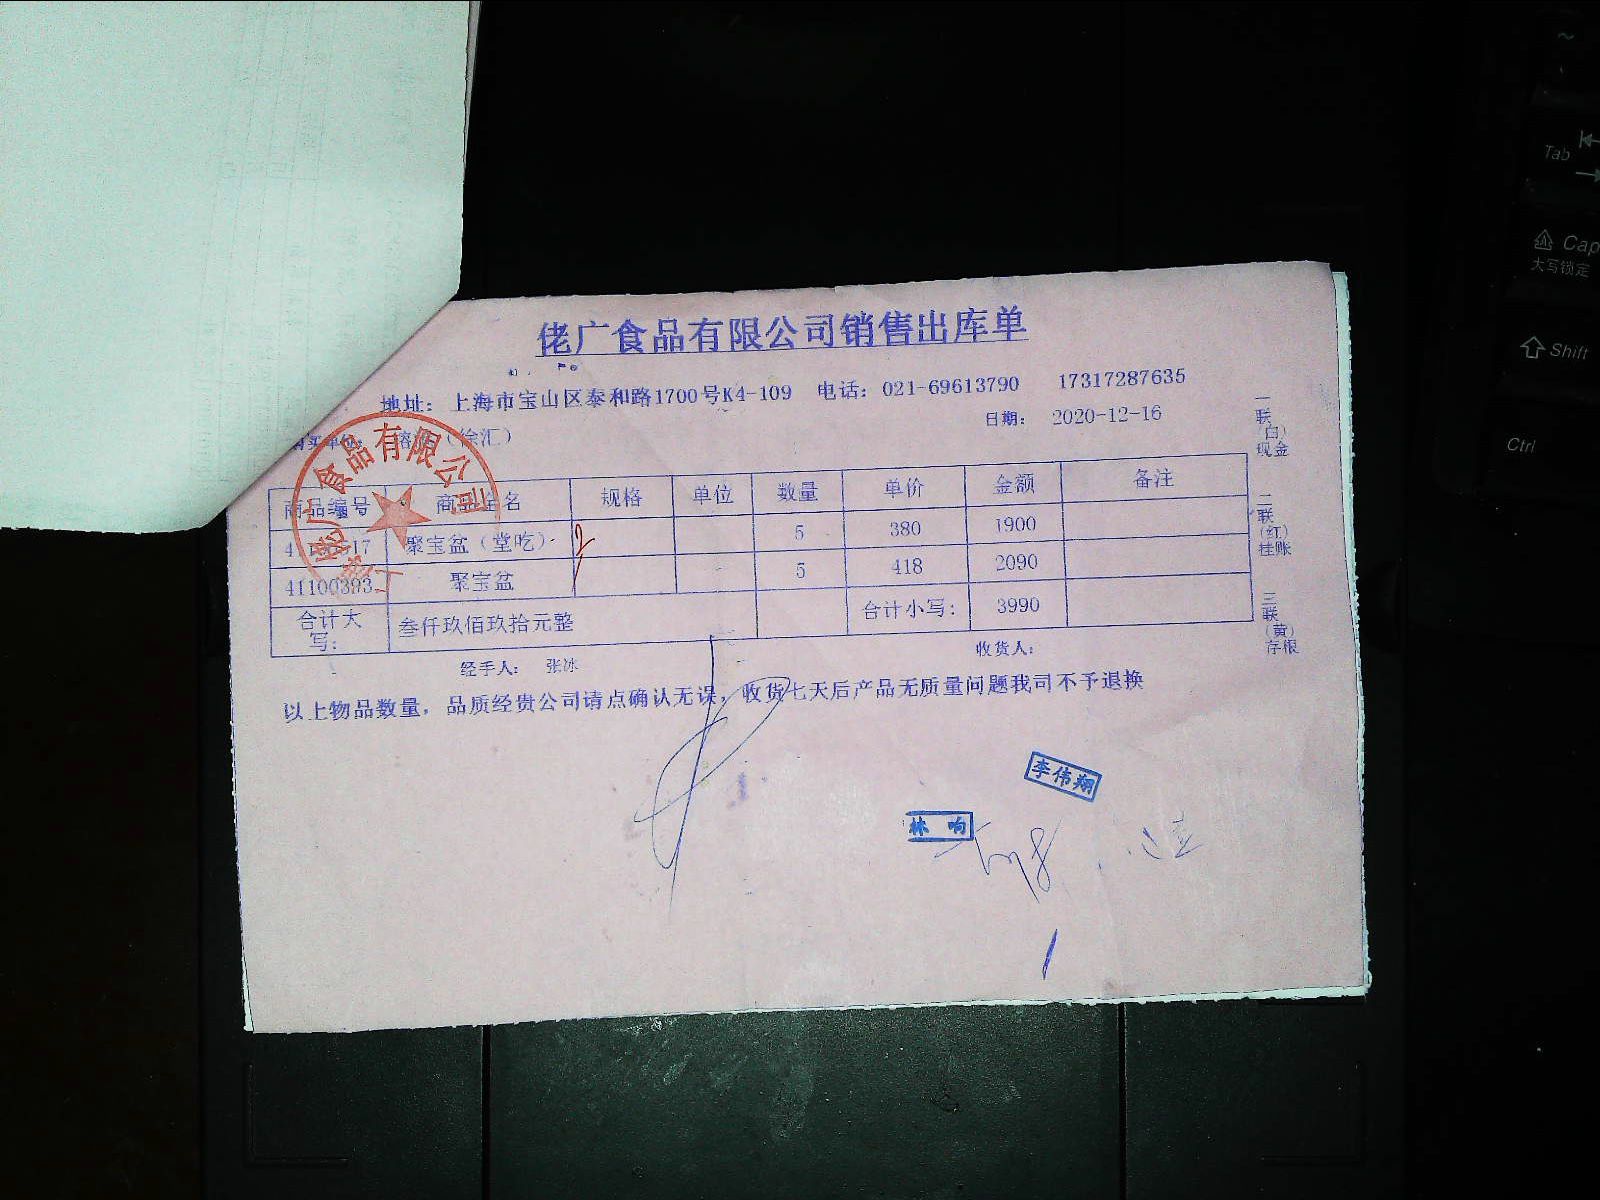 佬广食品有限公司销售出库单
地址：上海市宝山区泰和路1700号K4-109 电话：021-69613790 17317287635
（徐汇） 日期： 2020-12-16
商品编号 商品全名 规格 单位 数量 单价 金额 备注
聚宝盆（堂吃） 5 380 1900
41100393 聚宝盆 5 418 2090
合计大写： 叁仟玖佰玖拾元整 合计小写： 3990
经手人： 张冰 收货人：
以上物品数量，品质经贵公司请点确认无误，收货七天后产品无质量问题我司不予退换
一联（白）现金
二联（红）挂账
三联（黄）存根
李伟翔
林响
佬广食品有限公司
Tab
Cap
大写锁定
Shift
Ctrl